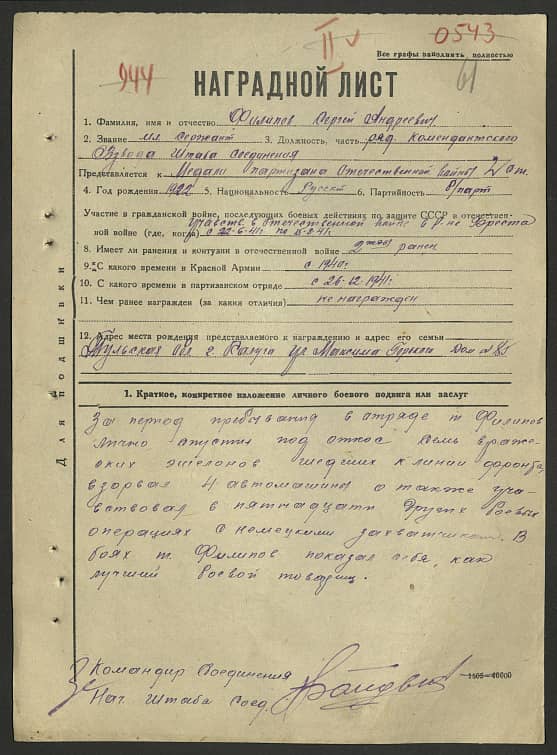 0543
II
Все графы заполнять полностью
944
61
НАГРАДНОЙ ЛИСТ
1. Фамилия, имя и отчество Филипов Сергей Андреевич
2. Звание мл. сержант 3. Должность, часть ряд. Комендантского
взвода Штаба Соединения
Представляется к Медали Партизана Отечественной войны 2 ст.
4. Год рождения 1922 5. Национальность Русский 6. Партийность б/парт
Участие в гражданской войне, последующих боевых действиях по защите СССР в отечествен-
участв. в отечественной войне в р-не Бреста
ной войне (где, когда) с 22-6-41г. по
8. Имеет ли ранения и контузии в отечественной войне 2жды ранен
9. С какого времени в Красной Армии с 1940г.
10. С какого времени в партизанском отряде с 26-12 1941г.
11. Чем ранее награжден (за какия отличия) не награжден
12. Адрес места рождения представляемого к награждению и адрес его семьи
Тульская обл г. Калуга ул Максима Горького дом № 85
Для подшивки
1. Краткое, конкретное изложение личного боевого подвига или заслуг
За период пребывания в отряде т. Филипов
лично спустил под откос семь враже-
ских эшелонов шедших к линии фронта,
взорвал 4 автомашины а также уча-
ствовал в пятнадцати других боевых
операциях с немецкими захватчиками. В
боях т. Филипов показал себя, как
лучший боевой товарищ.
Командир Соединения
Нач. Штаба Соед.
1505—40000